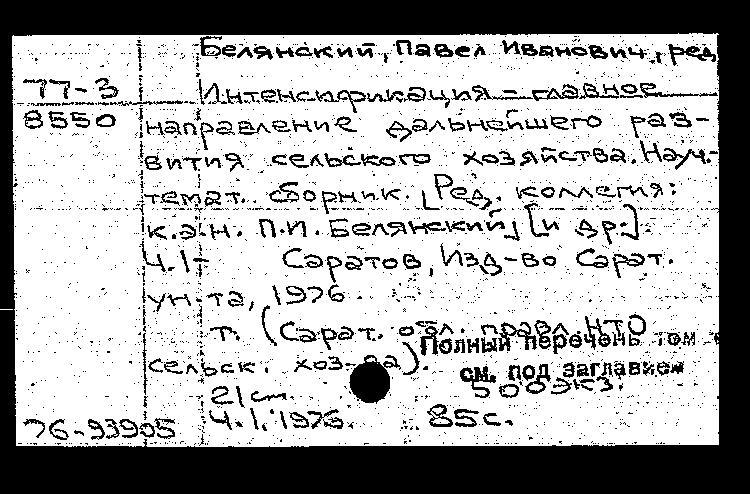 Белянский, Павел Иванович, ред
77-3 Интенсификация - главное
8550 направление дальнейшего раз-
вития сельского хозяйства. Науч.-
темат. сборник. [Ред. коллегия:
к.э.н. П.И. Белянский] [и др.].
Ч.1- Саратов, Изд-во Сарат.
ун-та, 1976.
т. (Сарат. обл. правл. НТО
сельск. хоз-ва).
Полный перечень том
см. под заглавием
21 cm 500 экз.
Ч.1. 1976. 85 с.
76-93905